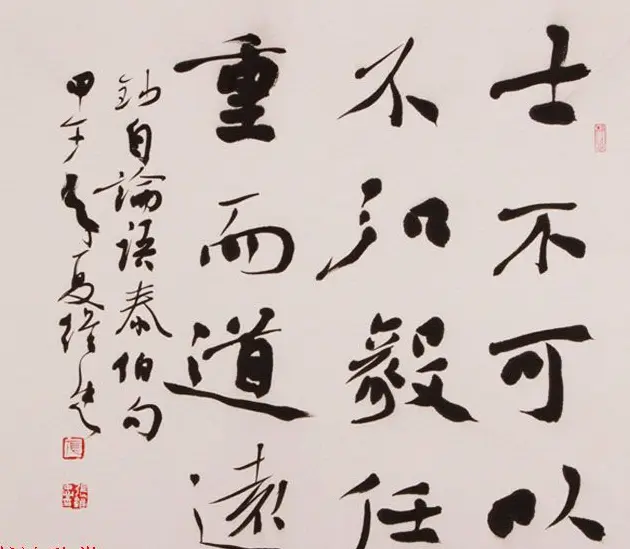 士不可以
不弘毅任
重而道遠
鈔自論語泰伯句
甲午年夏